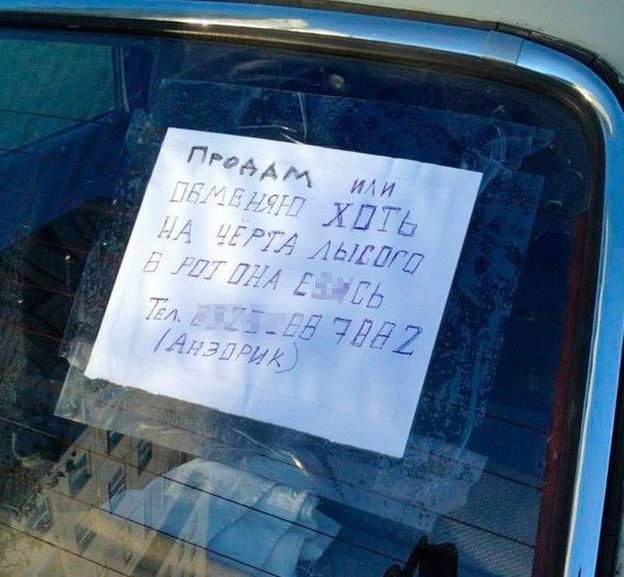 ПРОДАМ ИЛИ
ОБМЕНЯЮ ХОТЬ
НА ЧЁРТА ЛЫСОГО
В РОТ ОНА
Тел. 88 7882
(АНЗОРИК)